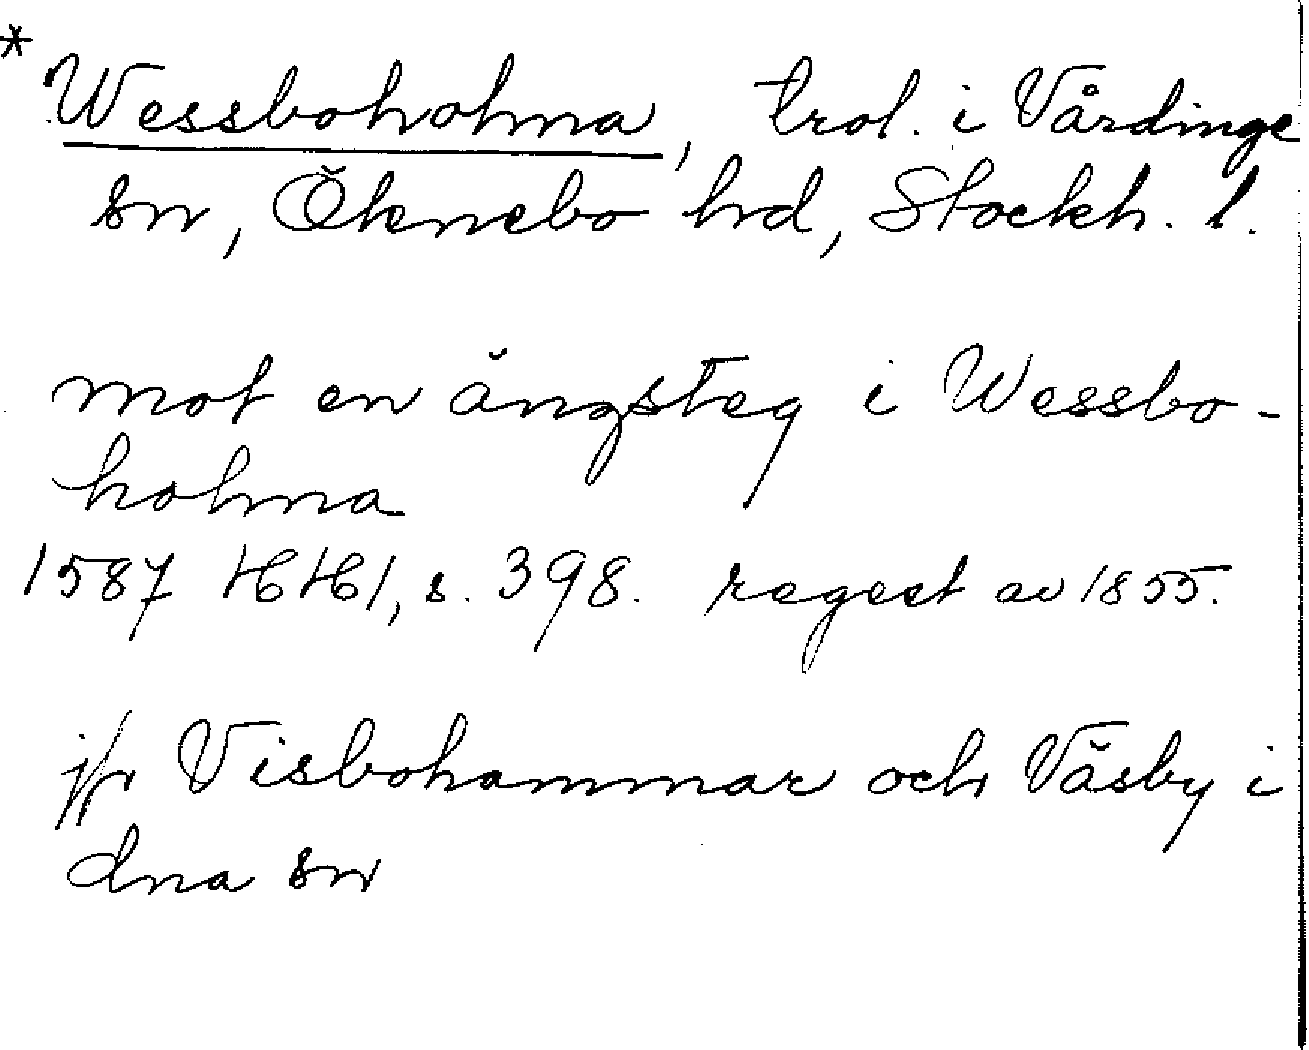 *
Wessboholma, trol. i Vårdinge
sn, Öknebo hd, Stockh. l.
mot en ängsteg i Wessbo-
holma
1587 HH1, s. 398. regest av 1855.
jfr Visbohammar och Väsby i
dna sn